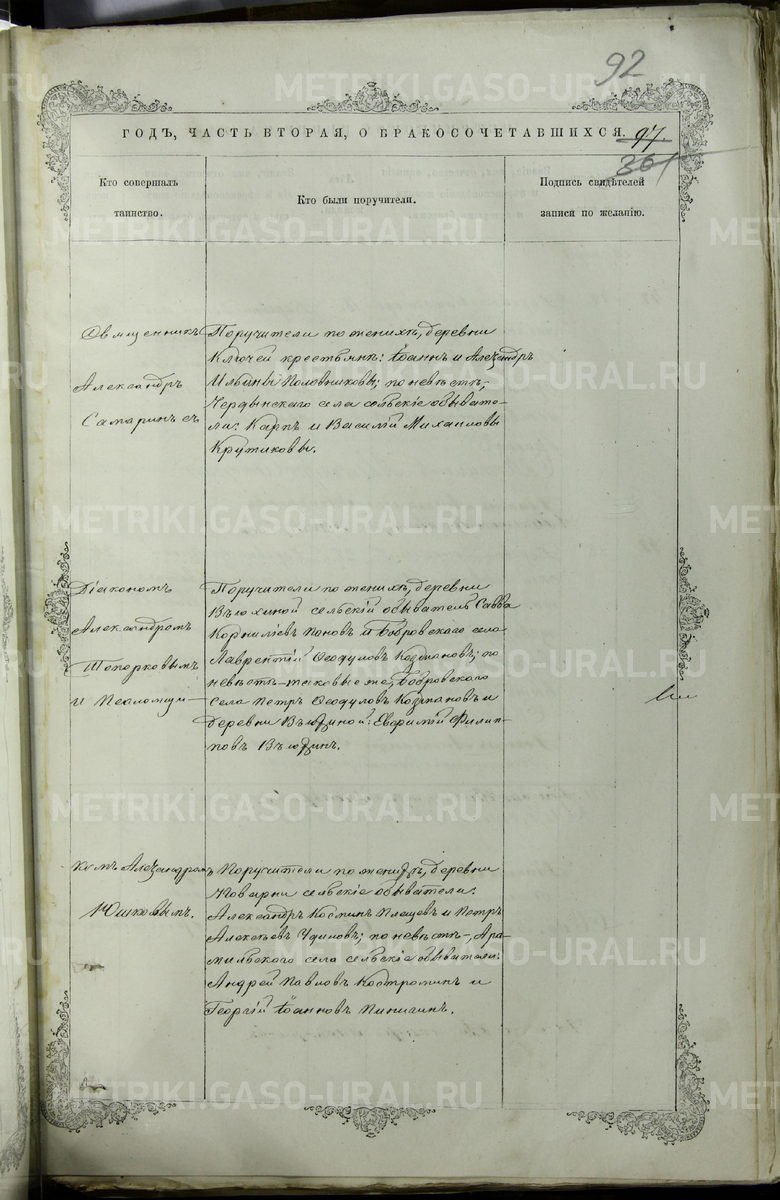 92
ГОДЪ, ЧАСТЬ ВТОРАЯ, О БРАКОСОЧЕТАВШИХСЯ.
97.
361
Кто совершалъ
таинство.
Кто были поручители.
Подпись свидѣтелей
записи по желанію.
Священникъ
Александръ
Самаринъ съ
Поручители по женихѣ, деревни
Ключей крестьяне: Іоаннъ и Александръ
Ильины Половниковы; по невѣстѣ,
села сельскіе обывате-
ли: Карпъ и Василій Михаиловы
Крутиковы.
Діакономъ
Александромъ
Топорковымъ
и Псаломщи-
Поручители по женихѣ, деревни
Вьюхиной сельскій обыватель Савва
Корниліевъ Поповъ и Бобровскаго села
Лаврентій Ѳеодуловъ; по
невѣстѣ-таковые же, Бобровскаго
села Петръ Ѳеодуловъ и
деревни Евфимій Филип-
повъ
комъ Александромъ
Юшковымъ.
Поручители по женихѣ, деревни
Поварни сельскіе обыватели:
Александръ Космин Плещевъ и Петръ
Алексѣевъ; по невѣстѣ-, Ара-
мильскаго села сельскіе обыватели:
Андрей Павловъ Костроминъ и
Георгій Іоанновъ Пинигинъ.
METRIKI.GASO-URAL.RU